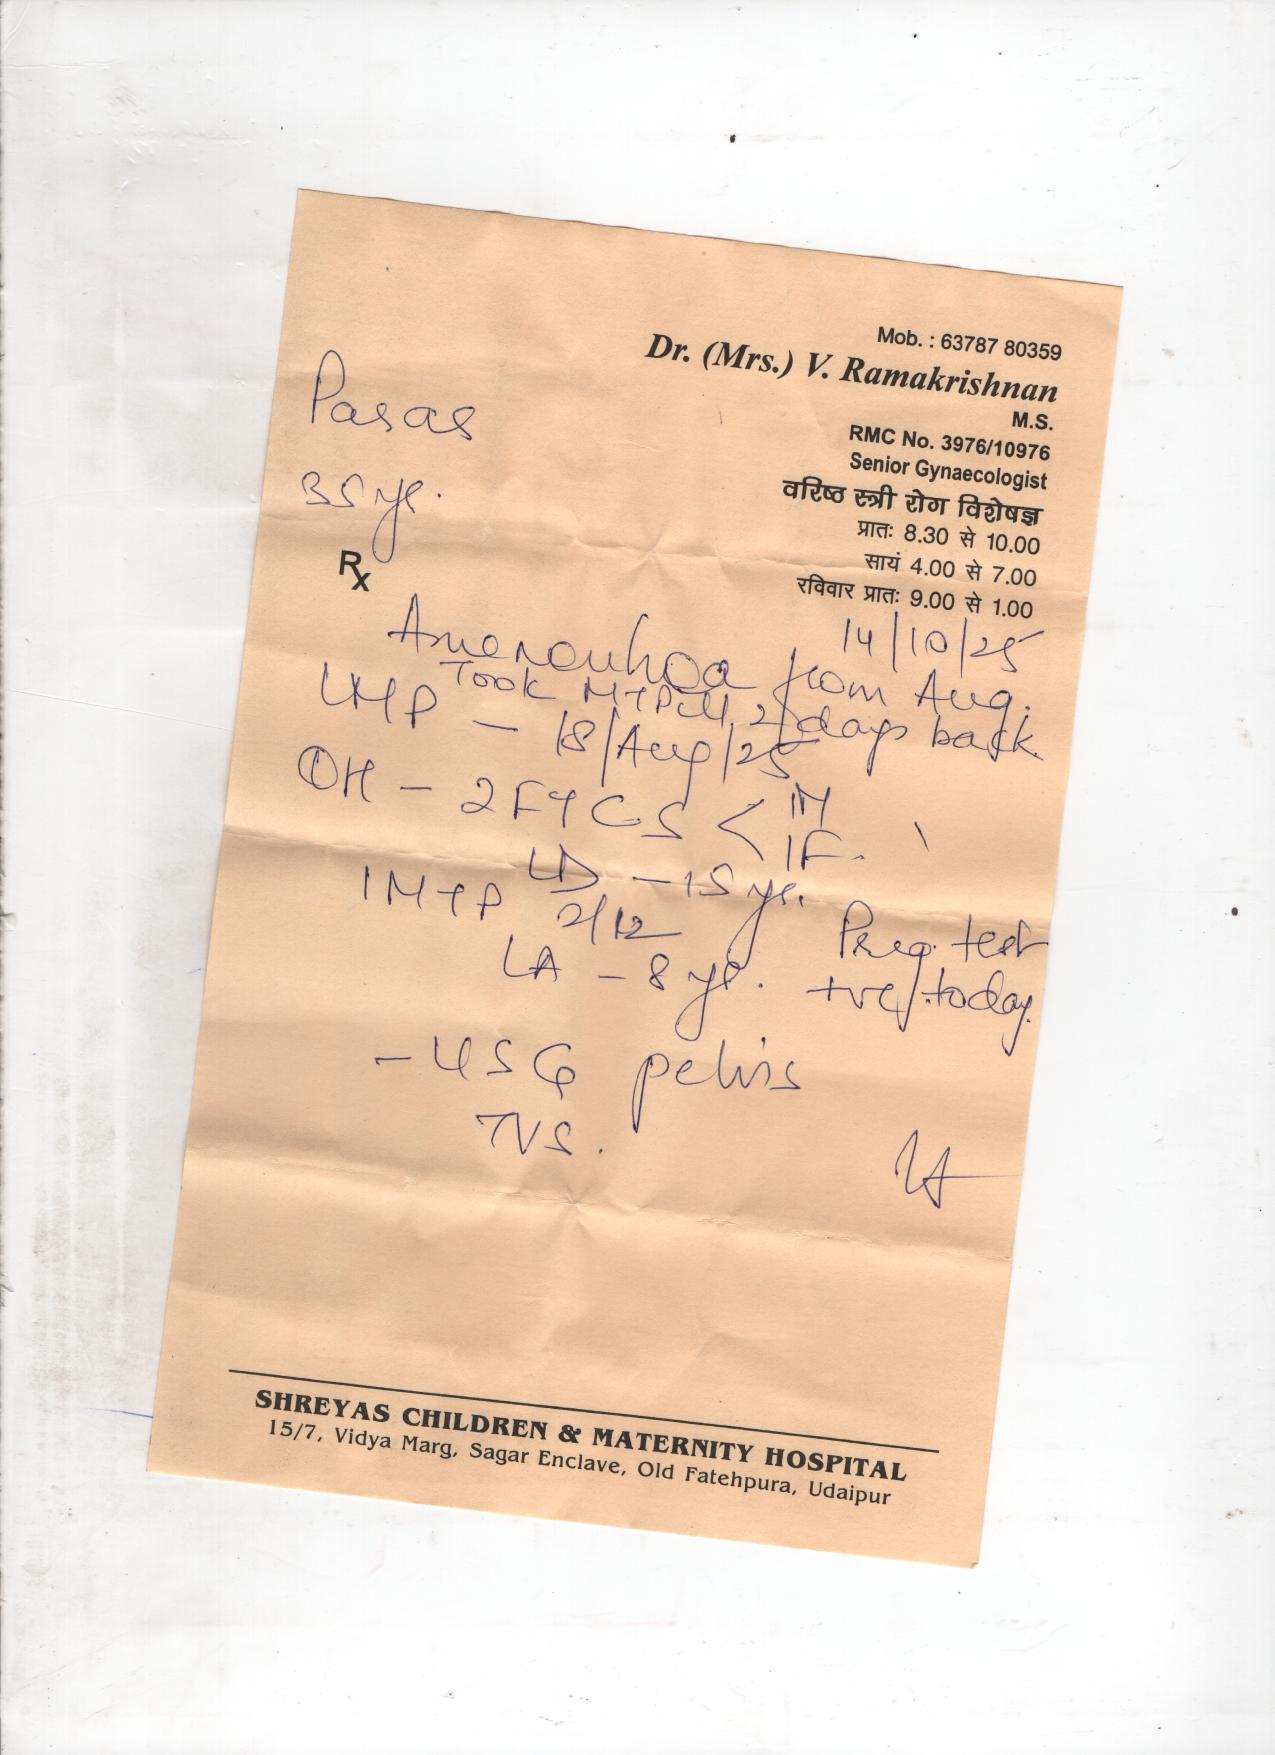 Mob. : 63787 80359
Dr. (Mrs.) V. Ramakrishnan
M.S.
RMC No. 3976/10976
Senior Gynaecologist
वरिष्ठ स्त्री रोग विशेषज्ञ
प्रातः 8.30 से 10.00
सायं 4.00 से 7.00
रविवार प्रातः 9.00 से 1.00
Paras
35 yr.
Rx
14/10/25
Amenorrhoea from Aug.
Took MTPill 2 days back
LMP - 18/Aug/25
OH - 2FTCS < 1M
1F.
LD - 15 yr.
1MTP 2/12
LA - 8 yr.
Preg. test
+ve/today.
- USG pelvis
TVS.
SHREYAS CHILDREN & MATERNITY HOSPITAL
15/7, Vidya Marg, Sagar Enclave, Old Fatehpura, Udaipur